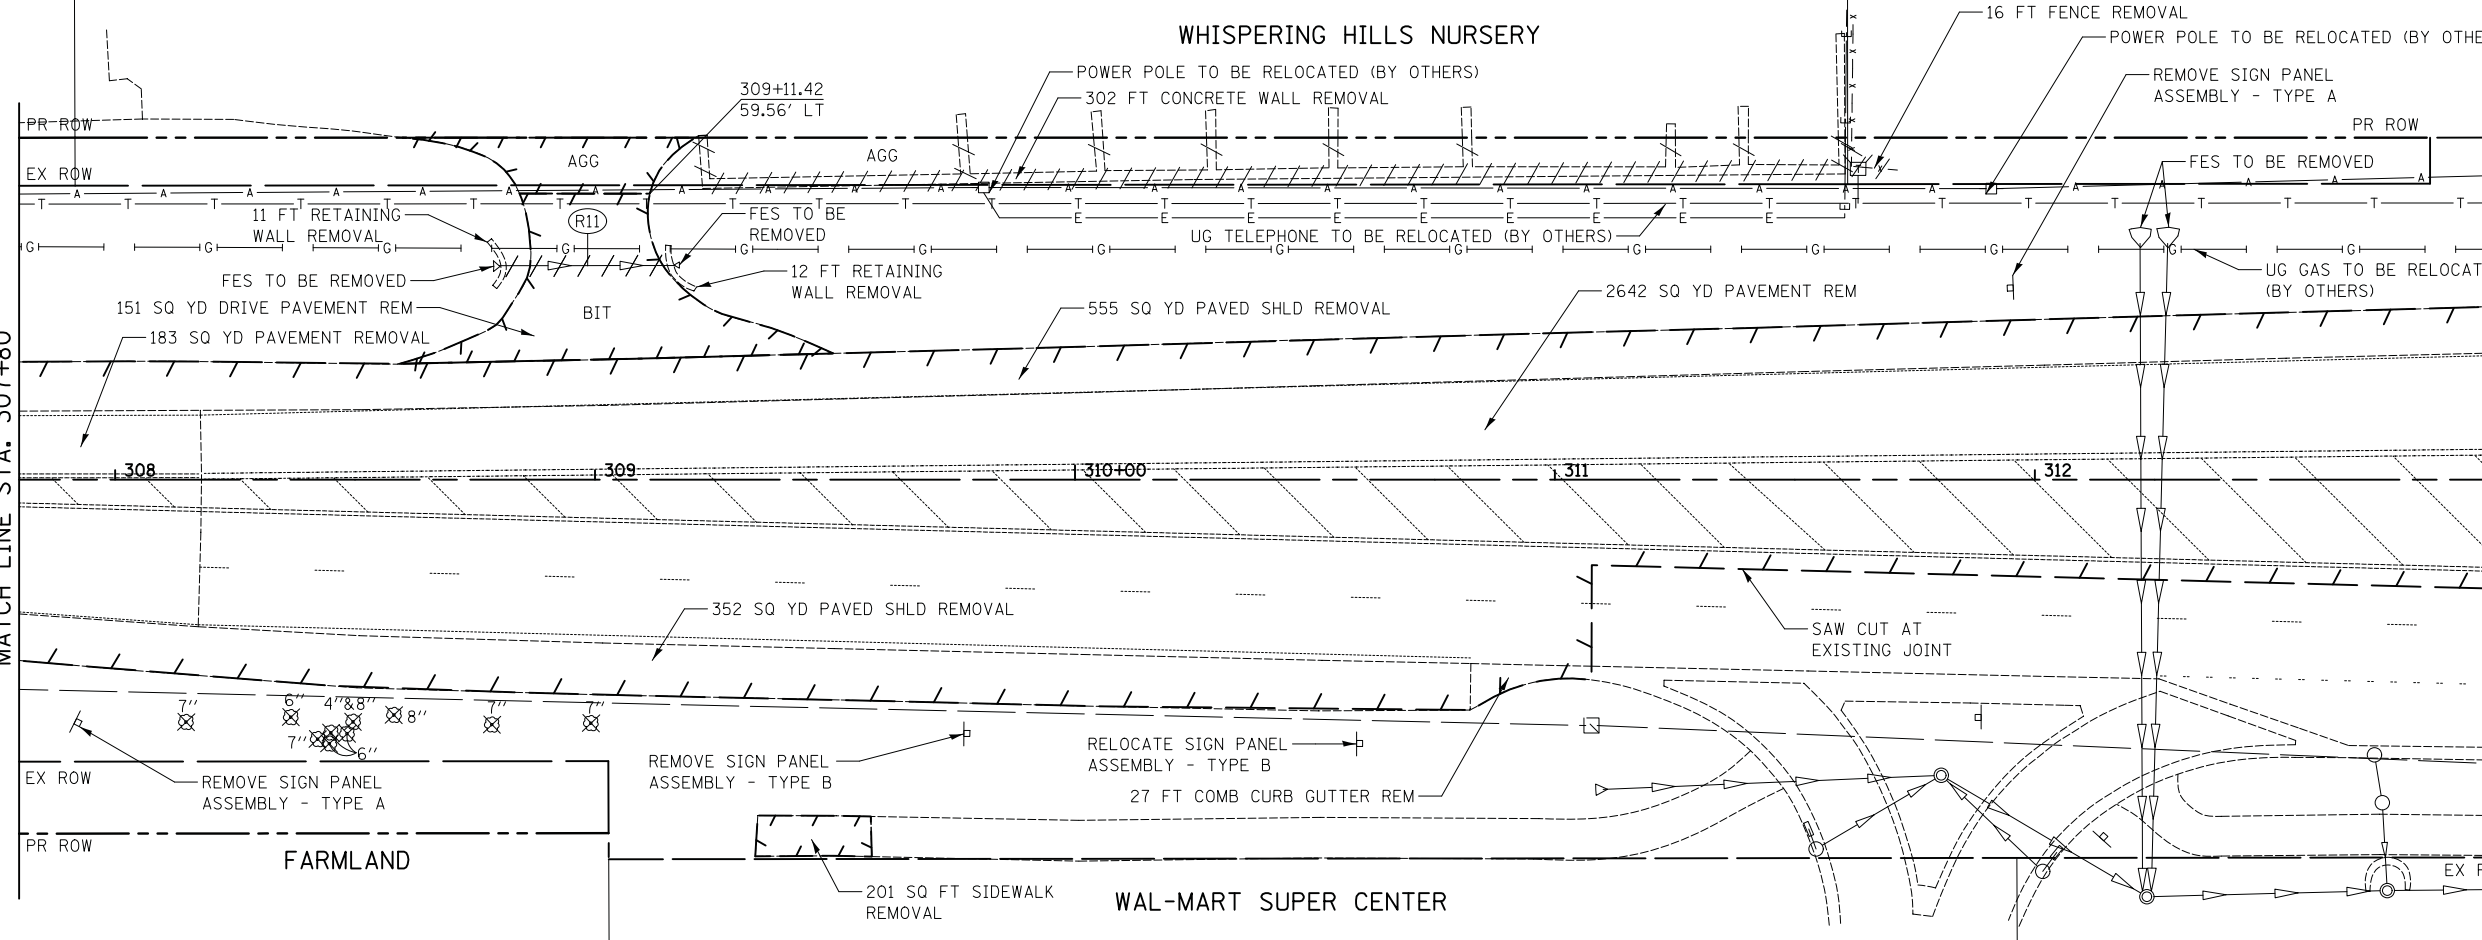 WHISPERING HILLS NURSERY
16 FT FENCE REMOVAL
POWER POLE TO BE RELOCATED (BY OTHE
POWER POLE TO BE RELOCATED (BY OTHERS)
302 FT CONCRETE WALL REMOVAL
REMOVE SIGN PANEL
ASSEMBLY - TYPE A
309+11.42
59.56' LT
PR ROW
PR ROW
AGG
AGG
EX ROW
FES TO BE REMOVED
11 FT RETAINING
WALL REMOVAL
R11
FES TO BE
REMOVED
UG TELEPHONE TO BE RELOCATED (BY OTHERS)
FES TO BE REMOVED
12 FT RETAINING
WALL REMOVAL
UG GAS TO BE RELOCAT
(BY OTHERS)
151 SQ YD DRIVE PAVEMENT REM
BIT
555 SQ YD PAVED SHLD REMOVAL
2642 SQ YD PAVEMENT REM
183 SQ YD PAVEMENT REMOVAL
MATCH LINE STA. 307+80
308
309
310+00
311
312
352 SQ YD PAVED SHLD REMOVAL
SAW CUT AT
EXISTING JOINT
7"
6"
4"&8"
8"
7"
7"
7"
6"
EX ROW
REMOVE SIGN PANEL
ASSEMBLY - TYPE A
REMOVE SIGN PANEL
ASSEMBLY - TYPE B
RELOCATE SIGN PANEL
ASSEMBLY - TYPE B
27 FT COMB CURB GUTTER REM
PR ROW
FARMLAND
201 SQ FT SIDEWALK
REMOVAL
WAL-MART SUPER CENTER
EX R